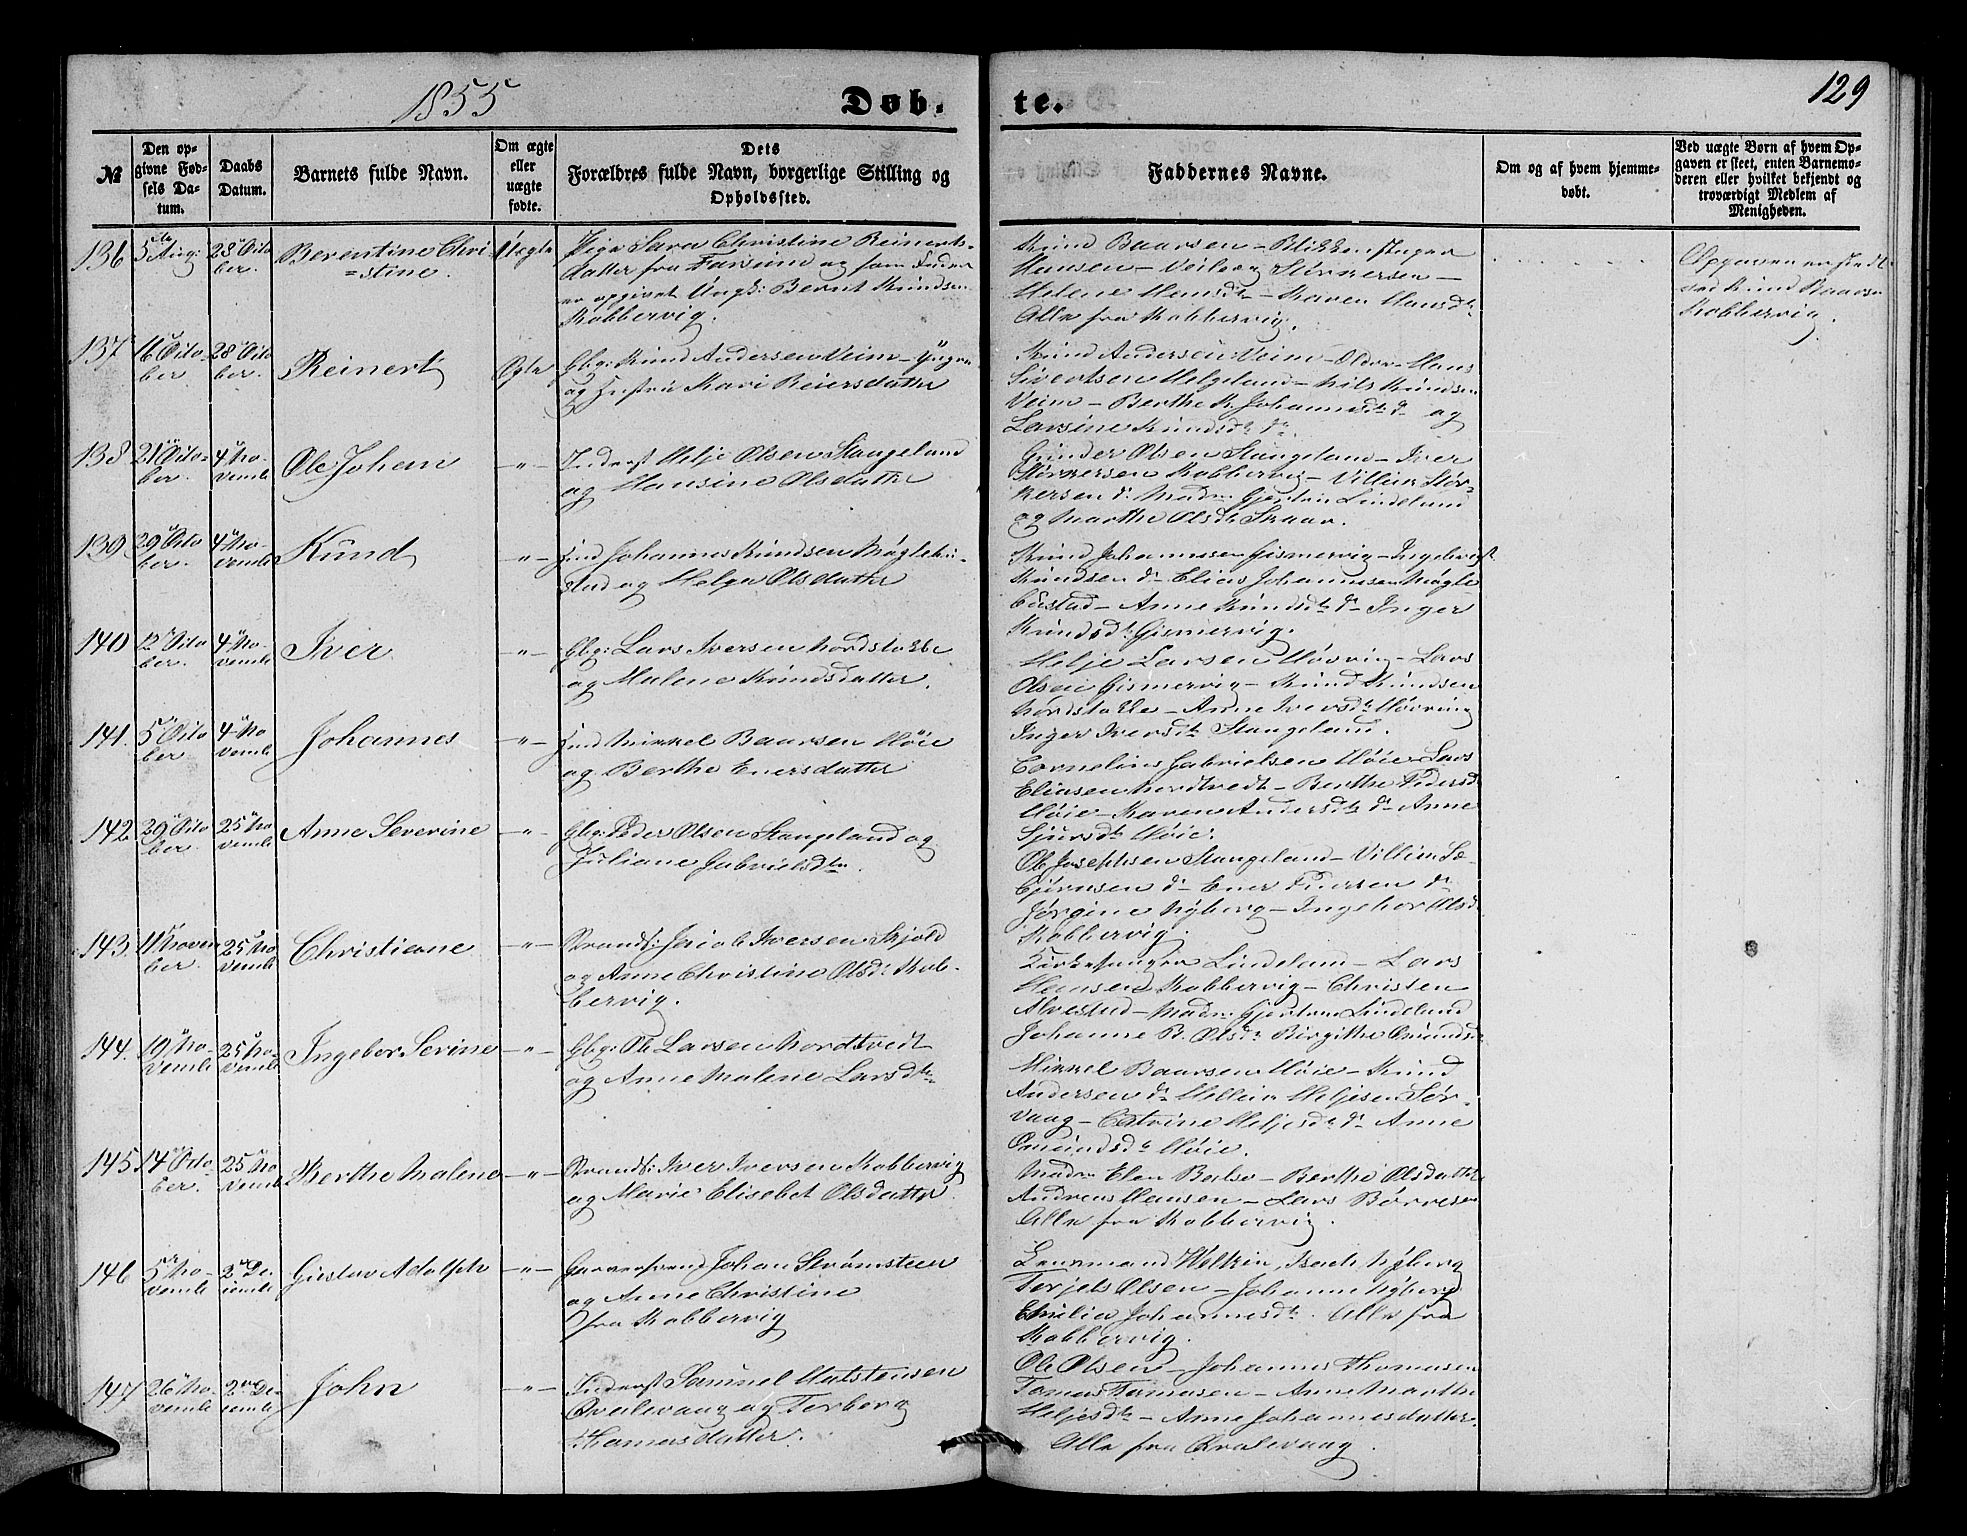 1855
Døb-
te.
129
№
Den op-
givne Fød-
sels Da-
tum.
Daabs
Datum.
Barnets fulde Navn.
Om ægte
eller
uægte
fødte.
Dets
Forældres fulde Navn, borgerlige Stilling og
Opholdssted.
Faddernes Navne.
Om og af hvem hjemme-
døbt.
Ved uægte Børn af hvem Op-
gaven er skeet, enten Barnemo-
deren eller hvilket bekjendt og
troværdigt Medlem af
Menigheden.
136
5te Aug:
28 Octo
ber.
Berentine Chri
=stine.
Uægte
Pige Sara Christine Reinerts-
datter fra Farsund og som Fader
er opgivet Ungk: Bernt Knudsen
Kobbervig.
Knud Baarsen
Hansen
Helene Hansdtr - Karen Hansdtr
Alle fra Kobbervig.
Opgaven er skedt
ved Knud Baarsen
Kobbervig.
137
16 Octo-
ber
28 Octo
ber.
Reinert
Ægte
Gbr: Knud Andersen Veim
og Hustru Kari Reiersdatter
Knud Andersen Veim
Sivertsen Helgeland - Nils Knudsen
Veim - Berthe K. Johannesdtr do og
Larsine Knudsdtr do.
138
21 Octo-
ber.
4 No-
vemb
Ole Johan
-"-
Inderst Helje Olsen Stangeland
og Hansine Olsdatter
Gunder Olsen Stangeland - Iver
Størkersen Kobbervig - Villum Stør-
kersen do Madm Gjertru Lindeland
og Marthe Olsdtr Skaar.
139
29 Octo
ber.
4 No-
vemb
Knud
-"-
Ind Johannes Knudsen Møglebu-
stad og Helga Olsdatter
Knud Johannesen Gismervig - Ingebrigt
Knudsen do Elias Johannesen Møgle
bustad - Anne Knudsdtr do Inger
Knudsdtr Gismervig.
140
12 Octo
ber.
4 No-
vemb
Iver
-"-
Gbr: Lars Iversen Nordstokke
og Malene Knudsdatter.
Helje Larsen Høvring - Lars
Olsen Gismervig - Knud Knudsen
Nordstokke - Anne Iversdtr Høvring
Inger Iversdtr Stangeland.
141.
5 Octo
ber
4 No
vemb
Johannes
-"-
Ind Mikkel Baarsen Høie
og Berthe Enersdatter
Cornelius Gabrielsen Høie - Lars
Eliasen Nordtvedt - Berthe Pedersd
Høie - Karen Andersdtr do Anne
Sjursdtr Høie.
142.
29 Octo
ber.
25 No
vemb
Anne Severine
-"-
Gbr: Peder Olsen Stangeland og
Juliane Gabrielsdtr
Ole Josephsen Stangeland - Villum To-
bjørnsen do Ener Pedersen do
Jørgine Nyberg - Ingebor Olsd
Kobbervig.
143.
11 Novem
ber
25 No
vemb
Christiane
-"-
Strands: Jacob Iversen Skjold
og Anne Christine Olsdr Kob-
bervig.
Kirkesanger Lindeland - Lars
Hansen Kobbervig - Christen
Alvestad - Madm Gjertru Lindeland
Johanne B. Olsdr Birgithe Omundsd
144.
19 No-
vemb
25 No-
vemb
Ingebor Serine
-"-
Gbr: Ole Larsen Nordtvedt
og Anne Malene Larsdtr
Mikkel Baarsen Høie - Knud
Andersen do Helje Heljesen Sør-
vaag - Catrine Heljesdtr do Anne
Omundsdtr Høie.
145.
14 Octo-
ber.
25 No
vemb
Berthe Malene
-"-
Strands: Iver Iversen Kobbervig
og Marie Elisebet Olsdatter
Madm Elen Balso - Berthe Olsdatter
Andreas Hansen - Lars Børresen
Alle fra Kobbervig.
146
5 No-
vemb
2 De-
cemb
Gustav Adolph
-"-
Garversvend Johan Strømsteen
og Anne Christine
fra Kobbervig
Lensmand Nyberg
Terjels Olsen - Johanne Nyberg
Emilia Johannesdtr. Alle fra
Kobbervig.
147
26 No-
vemb
2 De-
cemb
John
-"-
Inderst Samuel Halstensen
Qvalevaag og Torborg
Thomasdatter.
Ole Olsen - Johannes Thomasen
Tomas Tomasen - Anne Marthe
Heljesdtr - Anne Johannesdatter.
Alle fra Qvalevaag.